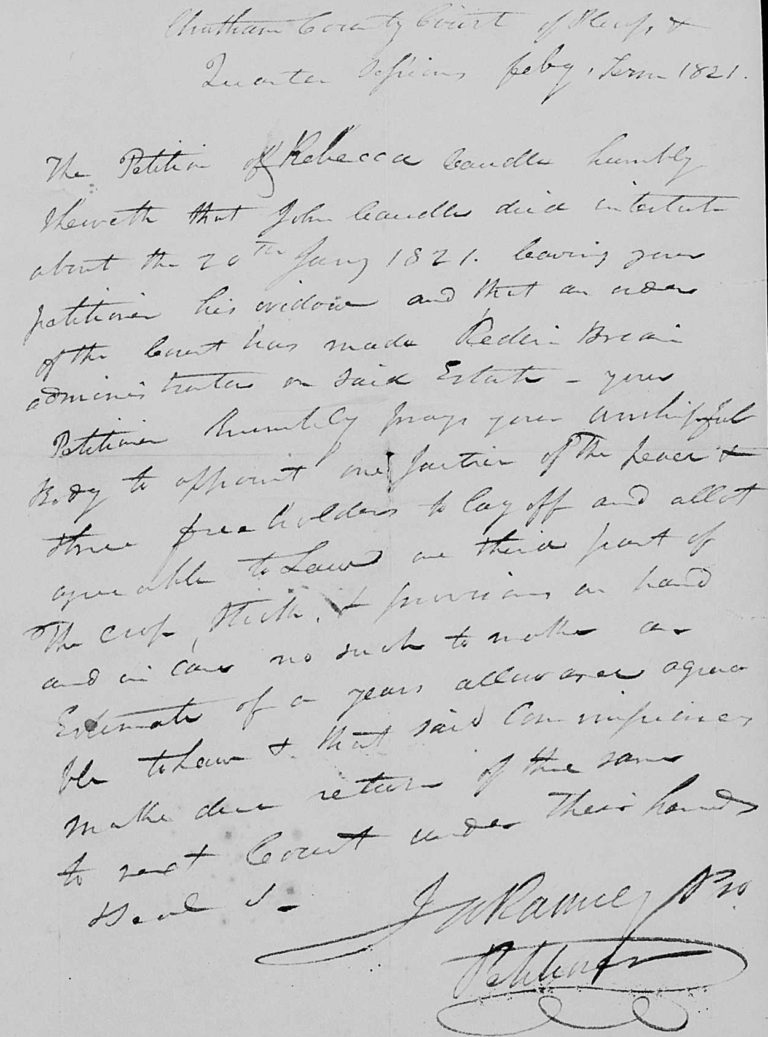 Chatham County Court of Pleas &
Quarter Sessions feby. Term 1821.
The Petition of Rebecca Caudle humbly
Sheweth that John Caudle died intestate
about the 20th Jany 1821. leaving your
petitioner his widow and that an order
of the Court has made Redin
administrator on said Estate - your
Petitioner humbly prays your worshipful
Body to appoint one Justice of the peace &
three freeholders to lay off and allot
agreeable to Law one third part of
The crop, stock, & provisions on hand
and in case no such to make an
Estimate of a years allowance agreea
ble to Law & that said Commissioners
make due return of the same
to next Court under their hands
& Seal
Ramsey Pro.
Petitioner